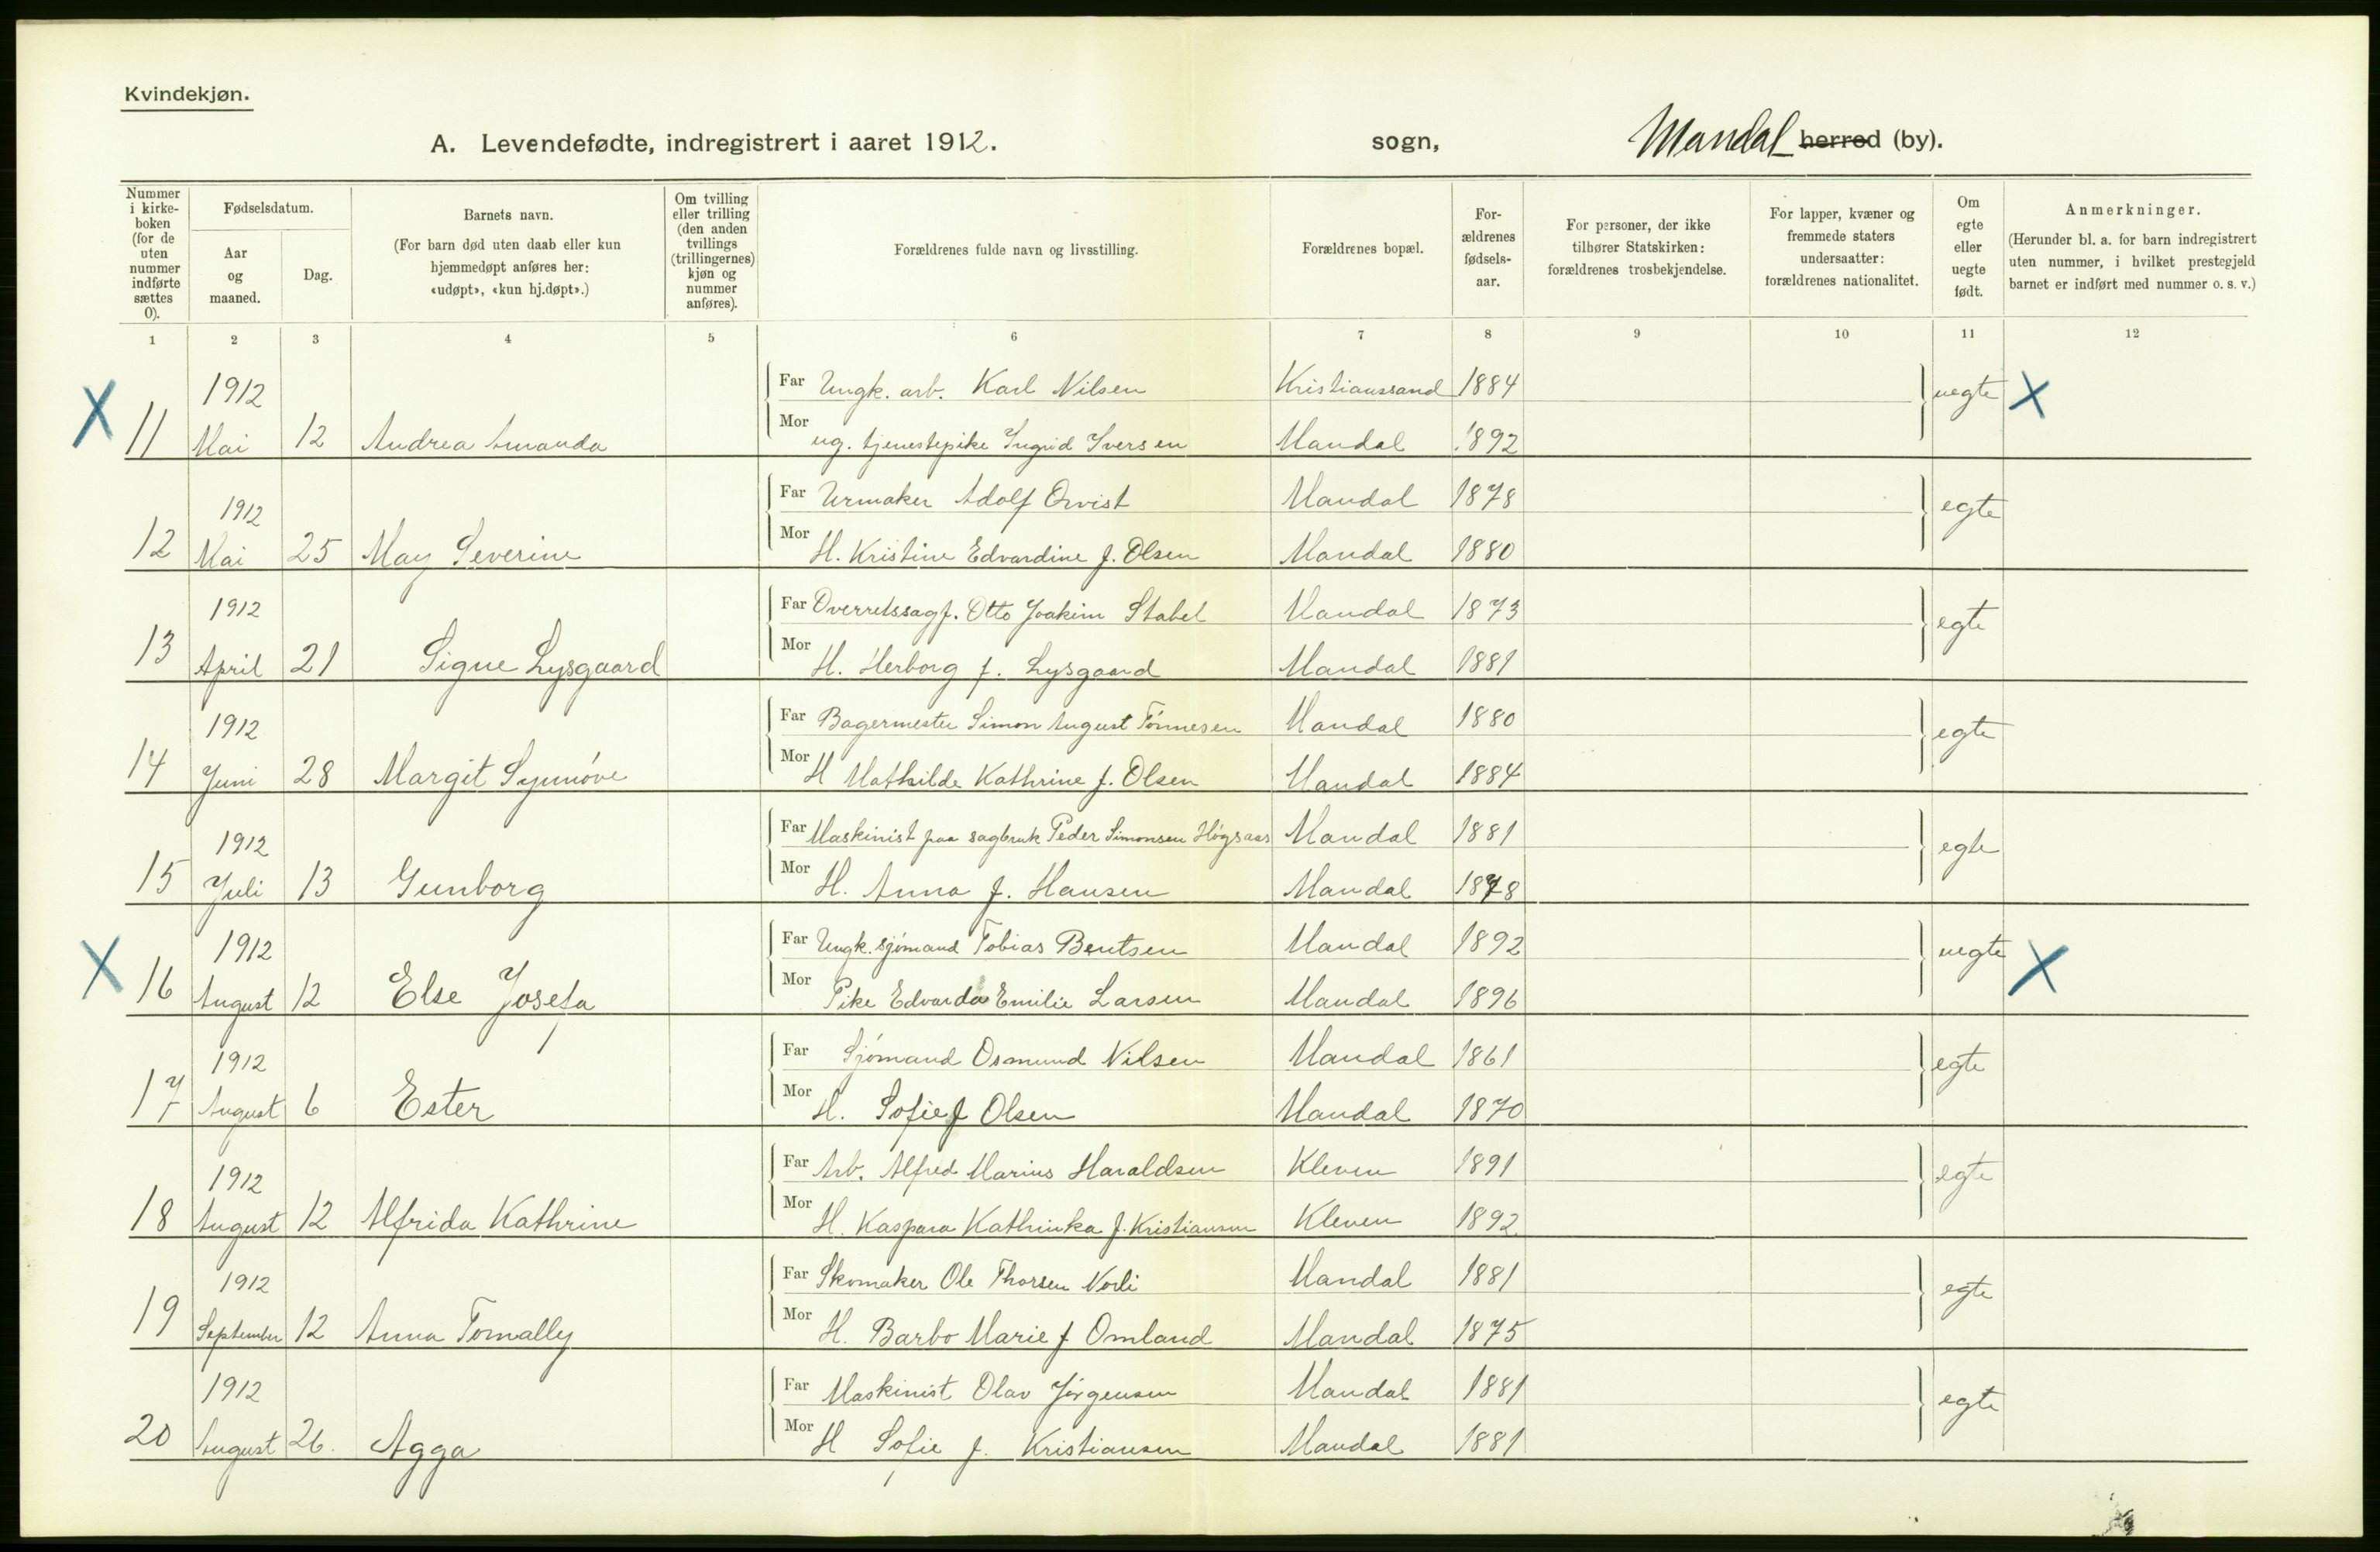 Kvindekjøn.
A. Levendefødte, indregistrert i aaret 1912. sogn, Mandal herred (by).
Nummer i kirke-boken (for de uten nummer indførte sættes 0).
Fødselsdatum.
Aar og maaned.
Dag.
Barnets navn.
(For barn død uten daab eller kun hjemmedøpt anføres her: «udøpt», «kun hj.døpt».)
Om tvilling eller trilling (den anden tvillings (trillingernes) kjøn og nummer anføres).
Forældrenes fulde navn og livsstilling.
Forældrenes bopæl.
For-ældrenes fødsels-aar.
For personer, der ikke tilhører Statskirken: forældrenes trosbekjendelse.
For lapper, kvæner og fremmede staters undersaatter: forældrenes nationalitet.
Om egte eller uegte født.
Anmerkninger.
(Herunder bl. a. for barn indregistrert uten nummer, i hvilket prestegjeld barnet er indført med nummer o. s. v.)
1 2 3 4 5 6 7 8 9 10 11 12
X 1912 Far Ungk. arb. Karl Nilsen Kristianssand 1884 uegte X
11 Mai 12 Andrea Amanda Mor ug. tjenestepike Ingrid Iversen Mandal 1892
1912 Far Urmaker Adolf Qvist Mandal 1878 egte
12 Mai 25 May Severine Mor H. Kristine Edvardine f. Olsen Mandal 1880
1912 Far Overretssagf. Otto Joakim Stabel Mandal 1873 egte
13 April 21 Signe Lysgaard Mor H. Herborg f. Lysgaard Mandal 1881
1912 Far Bagermester Simon August Tönnesen Mandal 1880 egte
14 Juni 28 Margit Synnöve Mor H Mathilde Kathrine f. Olsen Mandal 1884
1912 Far Maskinist paa sagbruk Peder Simonsen Høgsaas Mandal 1881 egte
15 Juli 13 Gunborg Mor H. Anna f. Hansen Mandal 1878
X 1912 Far Ungk. sjömand Tobias Bentsen Mandal 1892 uegte X
16 August 12 Else Josefa Mor Pike Edvarda Emilie Larsen Mandal 1896
1912 Far Sjömand Osmund Nilsen Mandal 1861 egte
17 August 6 Ester Mor H. Sofie f Olsen Mandal 1870
1912 Far Arb. Alfred Marius Haraldsen Kleven 1891 egte
18 August 12 Alfrida Kathrine Mor H. Kaspara Kathinka f. Kristiansen Kleven 1892
1912 Far Skomaker Ole Thorsen Norli Mandal 1881 egte
19 September 12 Anna Tomally Mor H. Barbo Marie f Omland Mandal 1875
1912 Far Maskinist Olav Jörgensen Mandal 1881 egte
20 August 26. Agga Mor H Sofie f. Kristiansen Mandal 1881